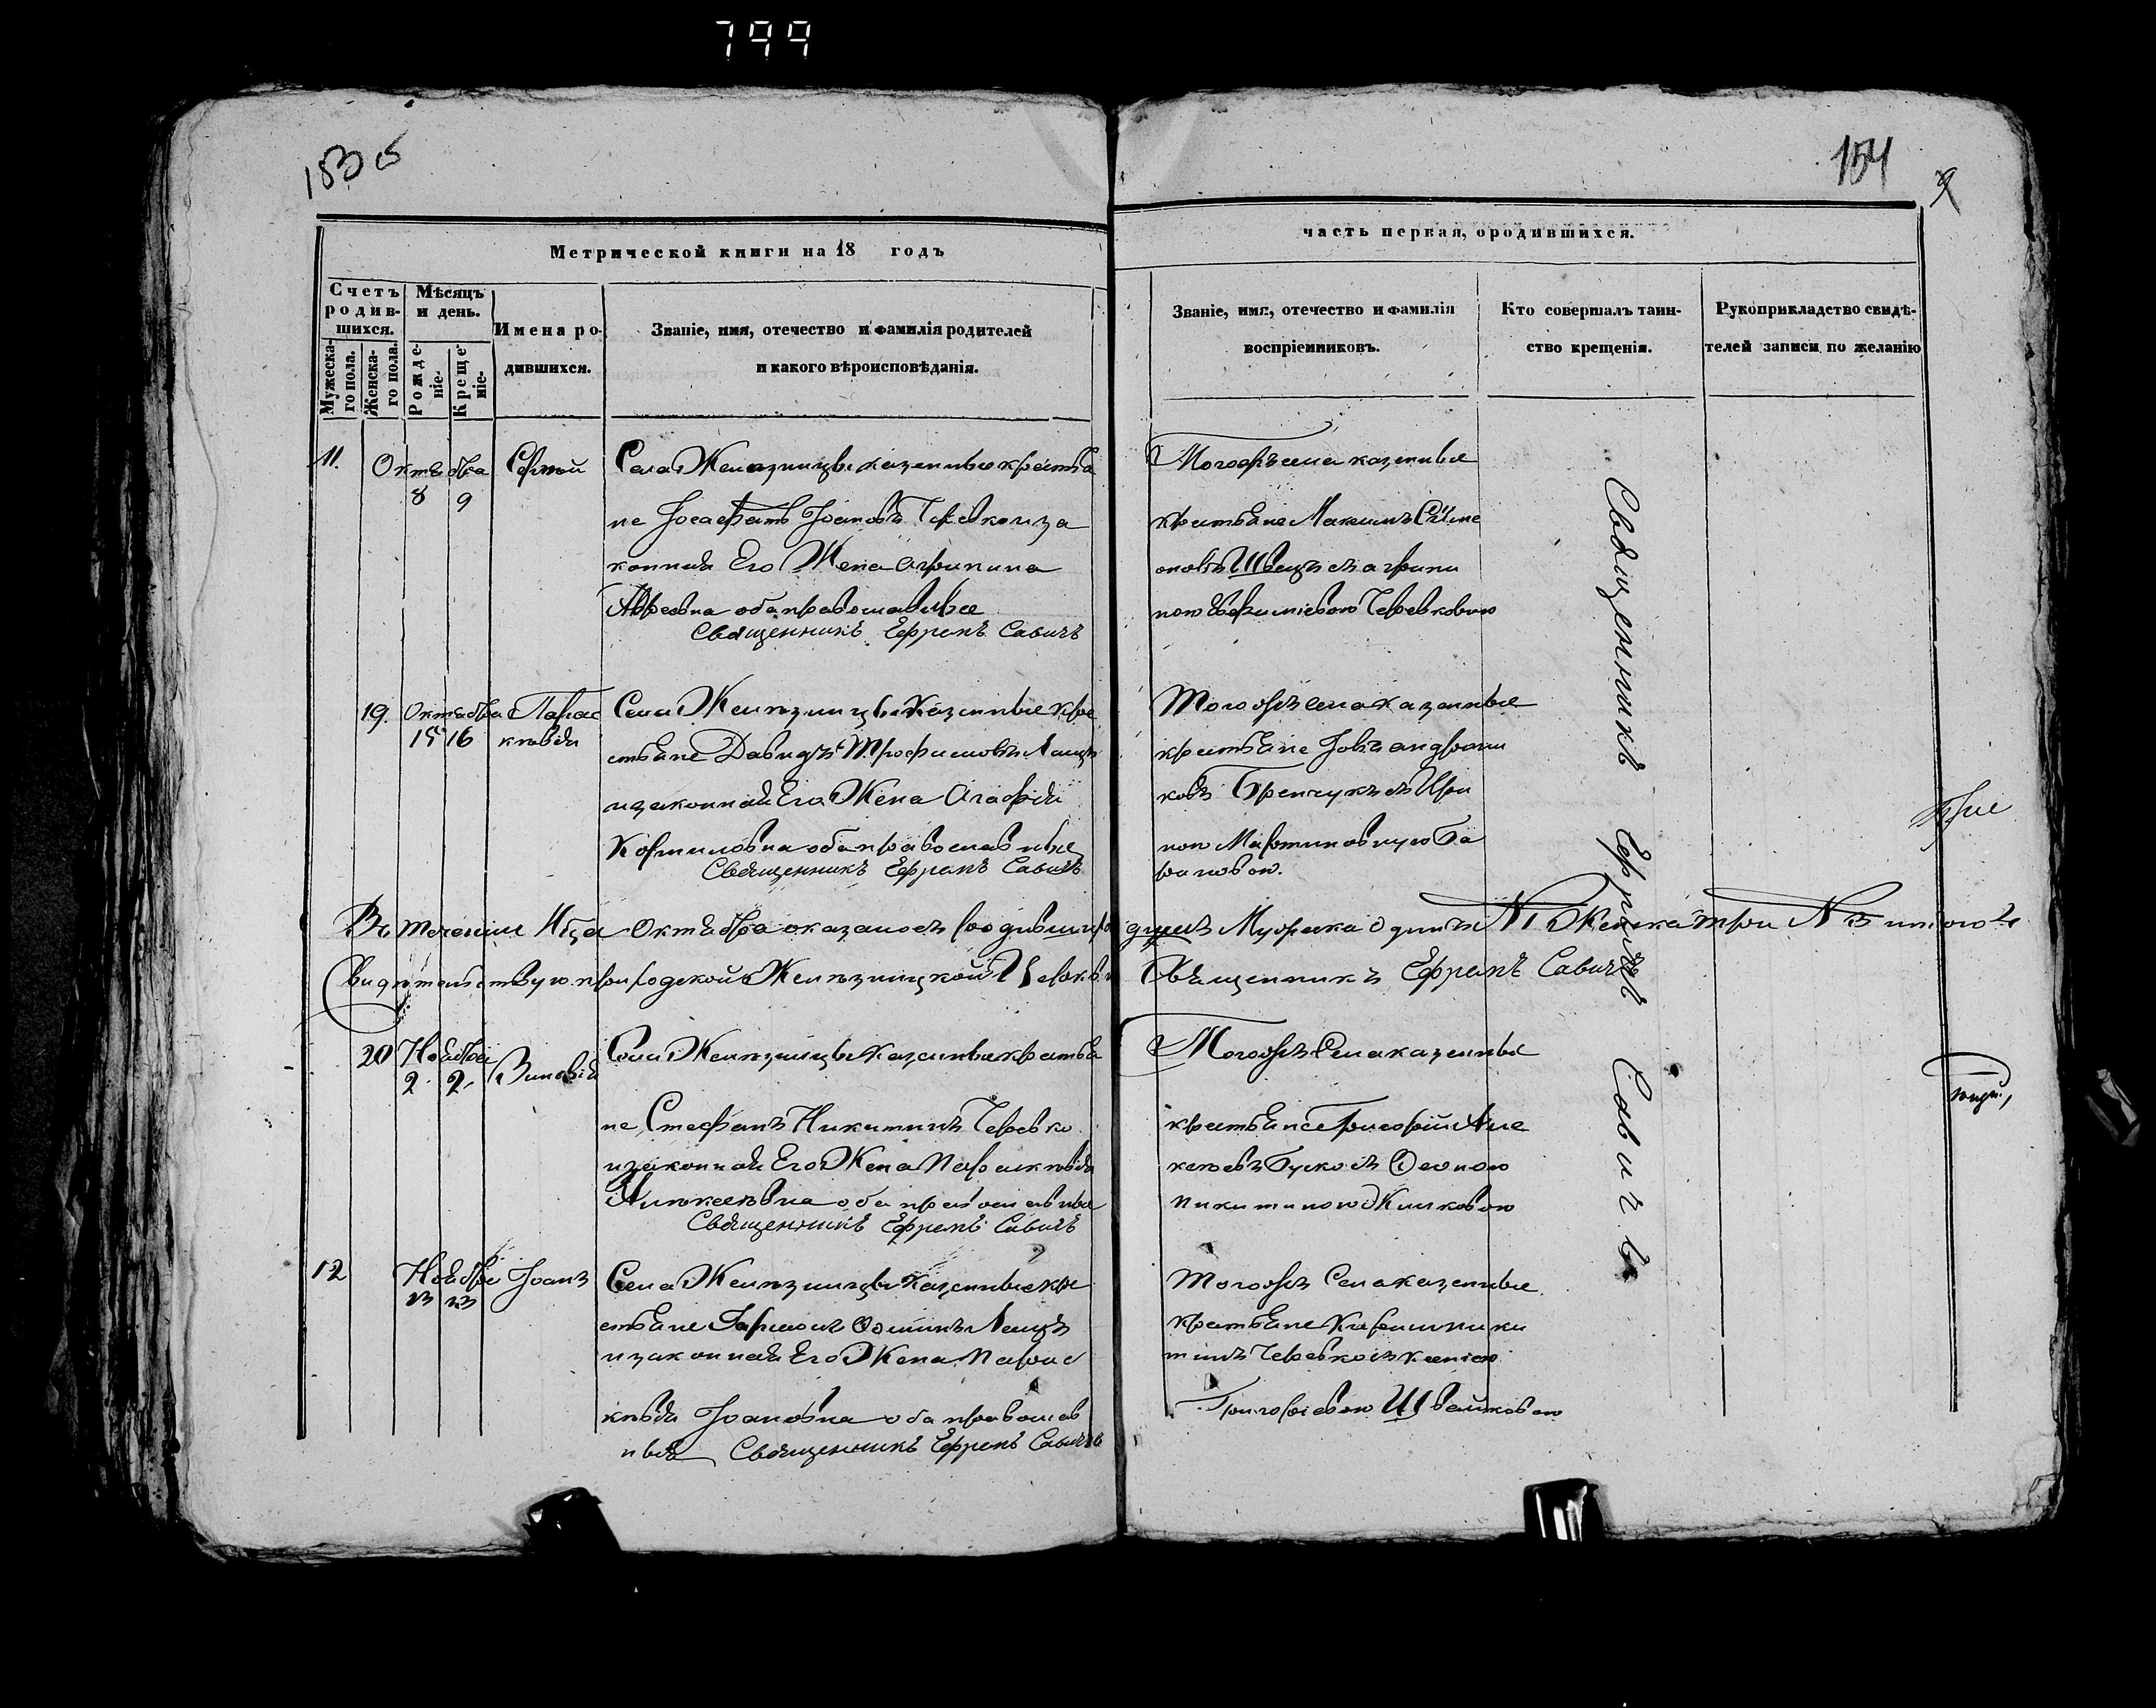 799
154
Метрической книги на 18 годъ
часть первая, ородившихся.
Счетъ родив-
шихся.
Мѣсяцъ
и день.
Мужеска-
го пола.
Женска-
го пола.
Рожде-
ніе.
Креще-
ніе.
Имена ро-
дившихся.
Званіе, имя, отечество и фамилія родителей
и какого вѣроисповѣданія.
Званіе, имя, отечество и фамилія
воспріемниковъ.
Кто совершалъ таин-
ство крещенія.
Рукоприкладство свидѣ-
телей записи по желанію
11. Октября
8 9
Сергій
Села Желѣзницы казенные крестья
не Іосафатъ Іоановъ Черевко и за
конная Его Жена Агрипина
Авреевна оба православные
Священникъ Ефремъ Савичъ
Тогожъ села казенные
крестьяне Максимъ Симе
оновъ Швецъ съ агрипи
ною Евфиміевою Черевковою
19. Октября
15 16
Парас
кѣвія
Села Желѣзницы Казенные кре
стьяне Давидъ Трофимовъ
и законная Его Жена Агафія
Корниловна оба православные
Священникъ Ефремъ Савичъ
Тогожъ села казенные
крестьяне Іовъ андрони
ковъ съ Ири
ною Мартиновною Ба
рановою.
Въ теченіи Мѣца Октября оказалось родившихся душъ Мужеска одинъ № 1 Женска три № 3
Свидѣтельствую приходской Желѣзницкой Церкви Священникъ Ефремъ Савичъ
20 Ноября
2. 2.
Зиновія
Села Желѣзницы Казенные крестья
не Стефанъ Никитинъ Черевко
и законная Его Жена Параскѣвія
Алѣксеевна оба православные
Священникъ Ефремъ Савичъ
Тогожъ Села казенные
крестьяне Григорій Але
ксѣевъ Буско съ Феоною
Никитиною
12 Ноября
13 13
Іоанъ
Села Желѣзницы казенные кре
стьяне
и законная Его Жена Парас
кѣвія Іоановна оба православ
ные Священникъ Ефремъ Савичъ
Тогожъ Села казенные
крестьяне Ники
тинъ Черевко съ Ксеніею
Григоріевою Швайковою
Священникъ Ефремъ Савичъ